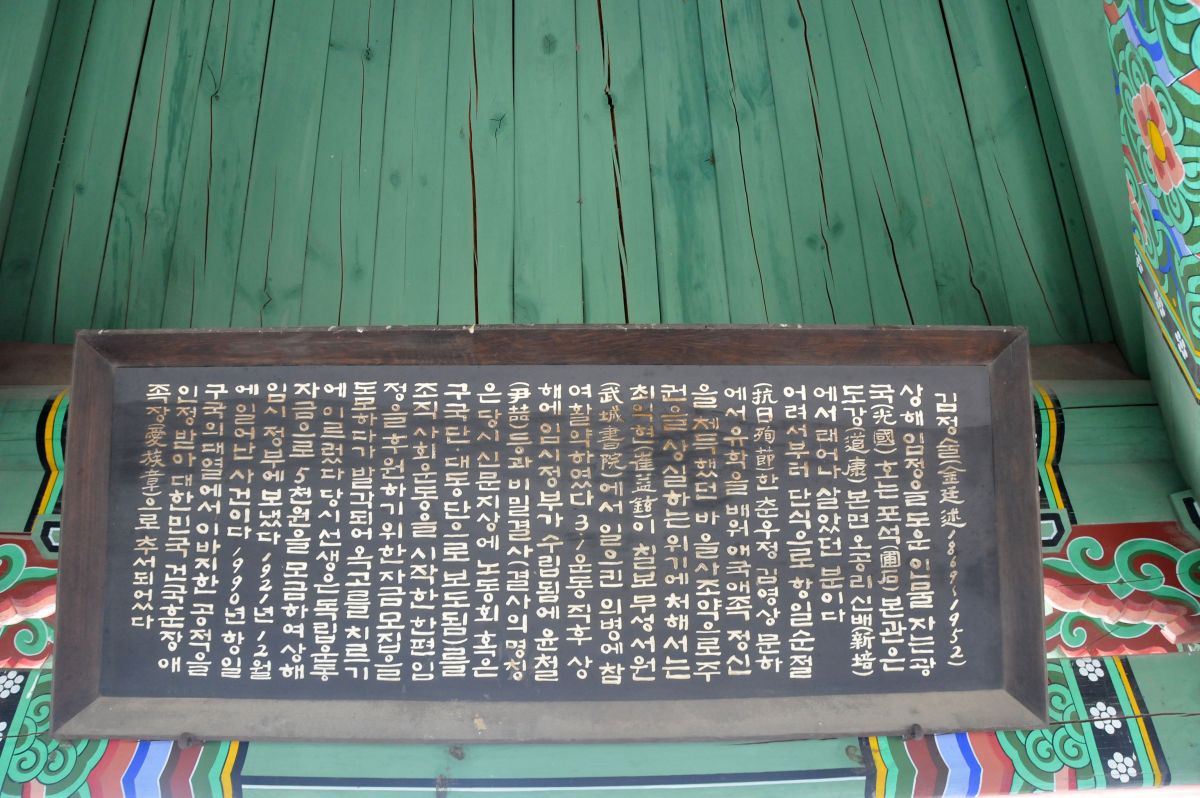 김정술(金廷述 1869~1952)
상해임정을 도운 인물 자는 광
국(光國) 호는 포석(圃石) 본관은
도강(道康) 본면 오공리 신배(新培)
에서 태어나 살았던 분이다
어려서부터 단식으로 항일순절
(抗日殉節)한 춘우정 김영상 문하
에서 유학을 배워 애국애족 정신
을 체득했던 바 을사조약으로 주
권을 상실하는 위기에 처해서는
최익현(崔益鉉)이 칠보 무성서원
(武城書院)에서 일으킨 의병에 참
여 활약하였다 31운동 직후 상
해에 임시정부가 수립됨에 윤철
(尹喆)등과 비밀결사(결사의 명칭
은 당시 신문지상에 노동회 혹은
구국단·대동단으로 보도됨)를
조직 사회운동을 시작한 한편 임
정을 후원하기 위한 자금모집을
도모하다가 발각되어 옥고를 치르기
에 이르렀다 당시 선생은 독립운동
자금으로 5천원을 모금하여 상해
임시정부에 보냈다 1921년 12월
에 일어난 사건이다 1990년 항일
구국의 대열에서 이바지한 공적을
인정받아 대한민국 건국훈장 애
족장(愛族章)으로 추서되었다